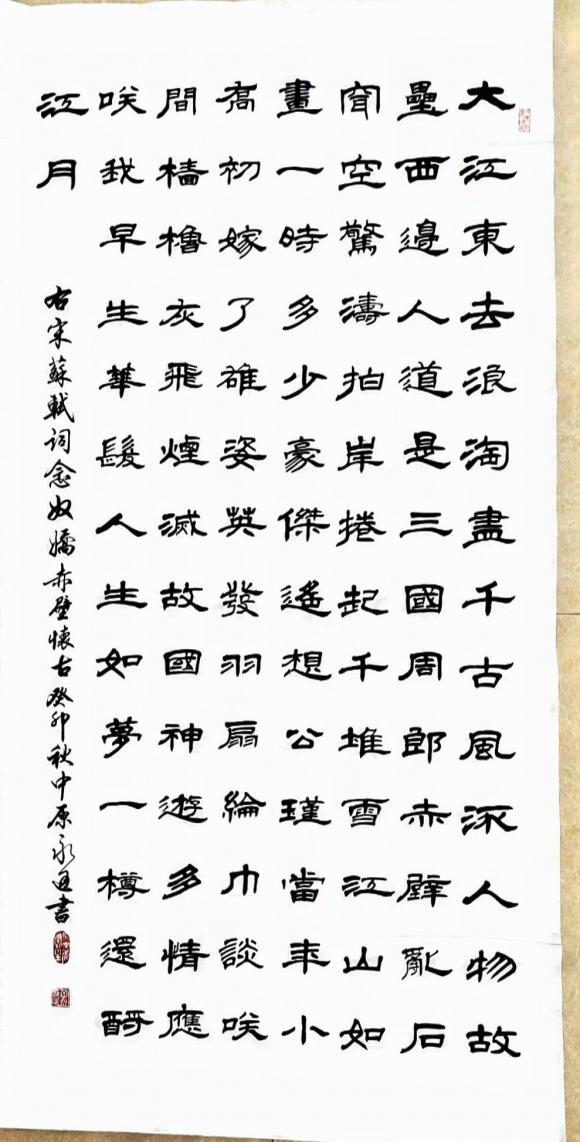 大江東去浪淘盡千古風流人物故
壘西邊人道是三國周郎赤壁亂石
穿空驚濤拍岸捲起千堆雪江山如
畫一時多少豪傑遙想公瑾當年小
喬初嫁了雄姿英發羽扇綸巾談咲
間檣櫓灰飛煙滅故國神遊多情應
咲我早生華髮人生如夢一樽還酹
江月
右宋蘇軾词念奴嬌赤壁懷古癸卯秋中原永通書